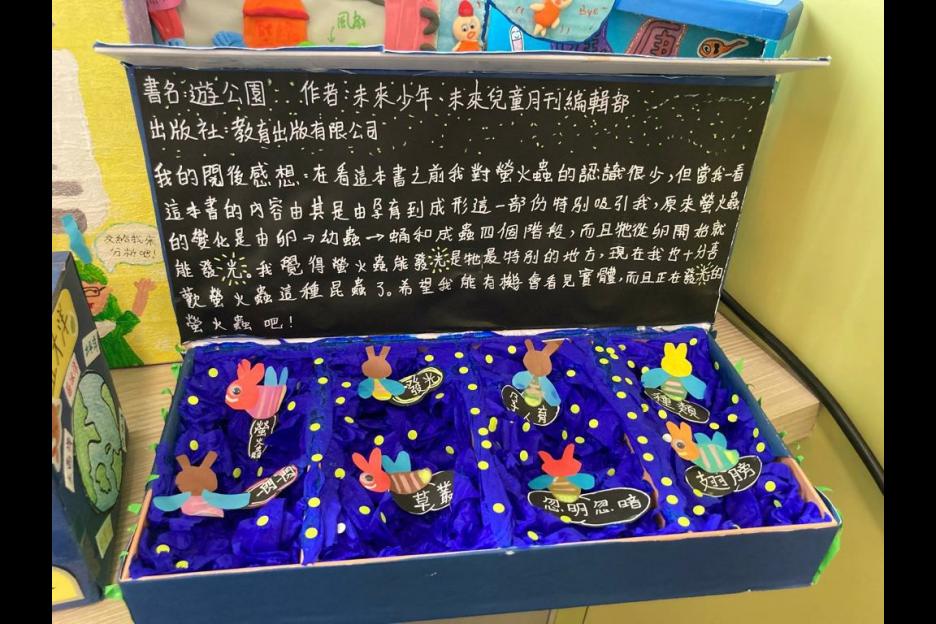 風扇
Bye~
書名:遊公園... 作者:未來少年、未來兒童月刊編輯部
出版社:教育出版有限公司
我的閱後感想:在看這本書之前我對螢火蟲的認識很少,但當我一看
這本書的內容由其是由孕育到成形這一部份特別吸引我,原來螢火蟲
的變化是由卵→幼蟲→蛹和成蟲四個階段,而且牠從卵開始就
能發光。我覺得螢火蟲能發光是牠最特別的地方,現在我也十分喜
歡螢火蟲這種昆蟲了。希望我能有機會看見實體,而且正在發光的
螢火蟲吧!
交給我來
分析吧!
螢火蟲
發光
孕育
種類
一閃一閃
草叢
忽明忽暗
翅膀